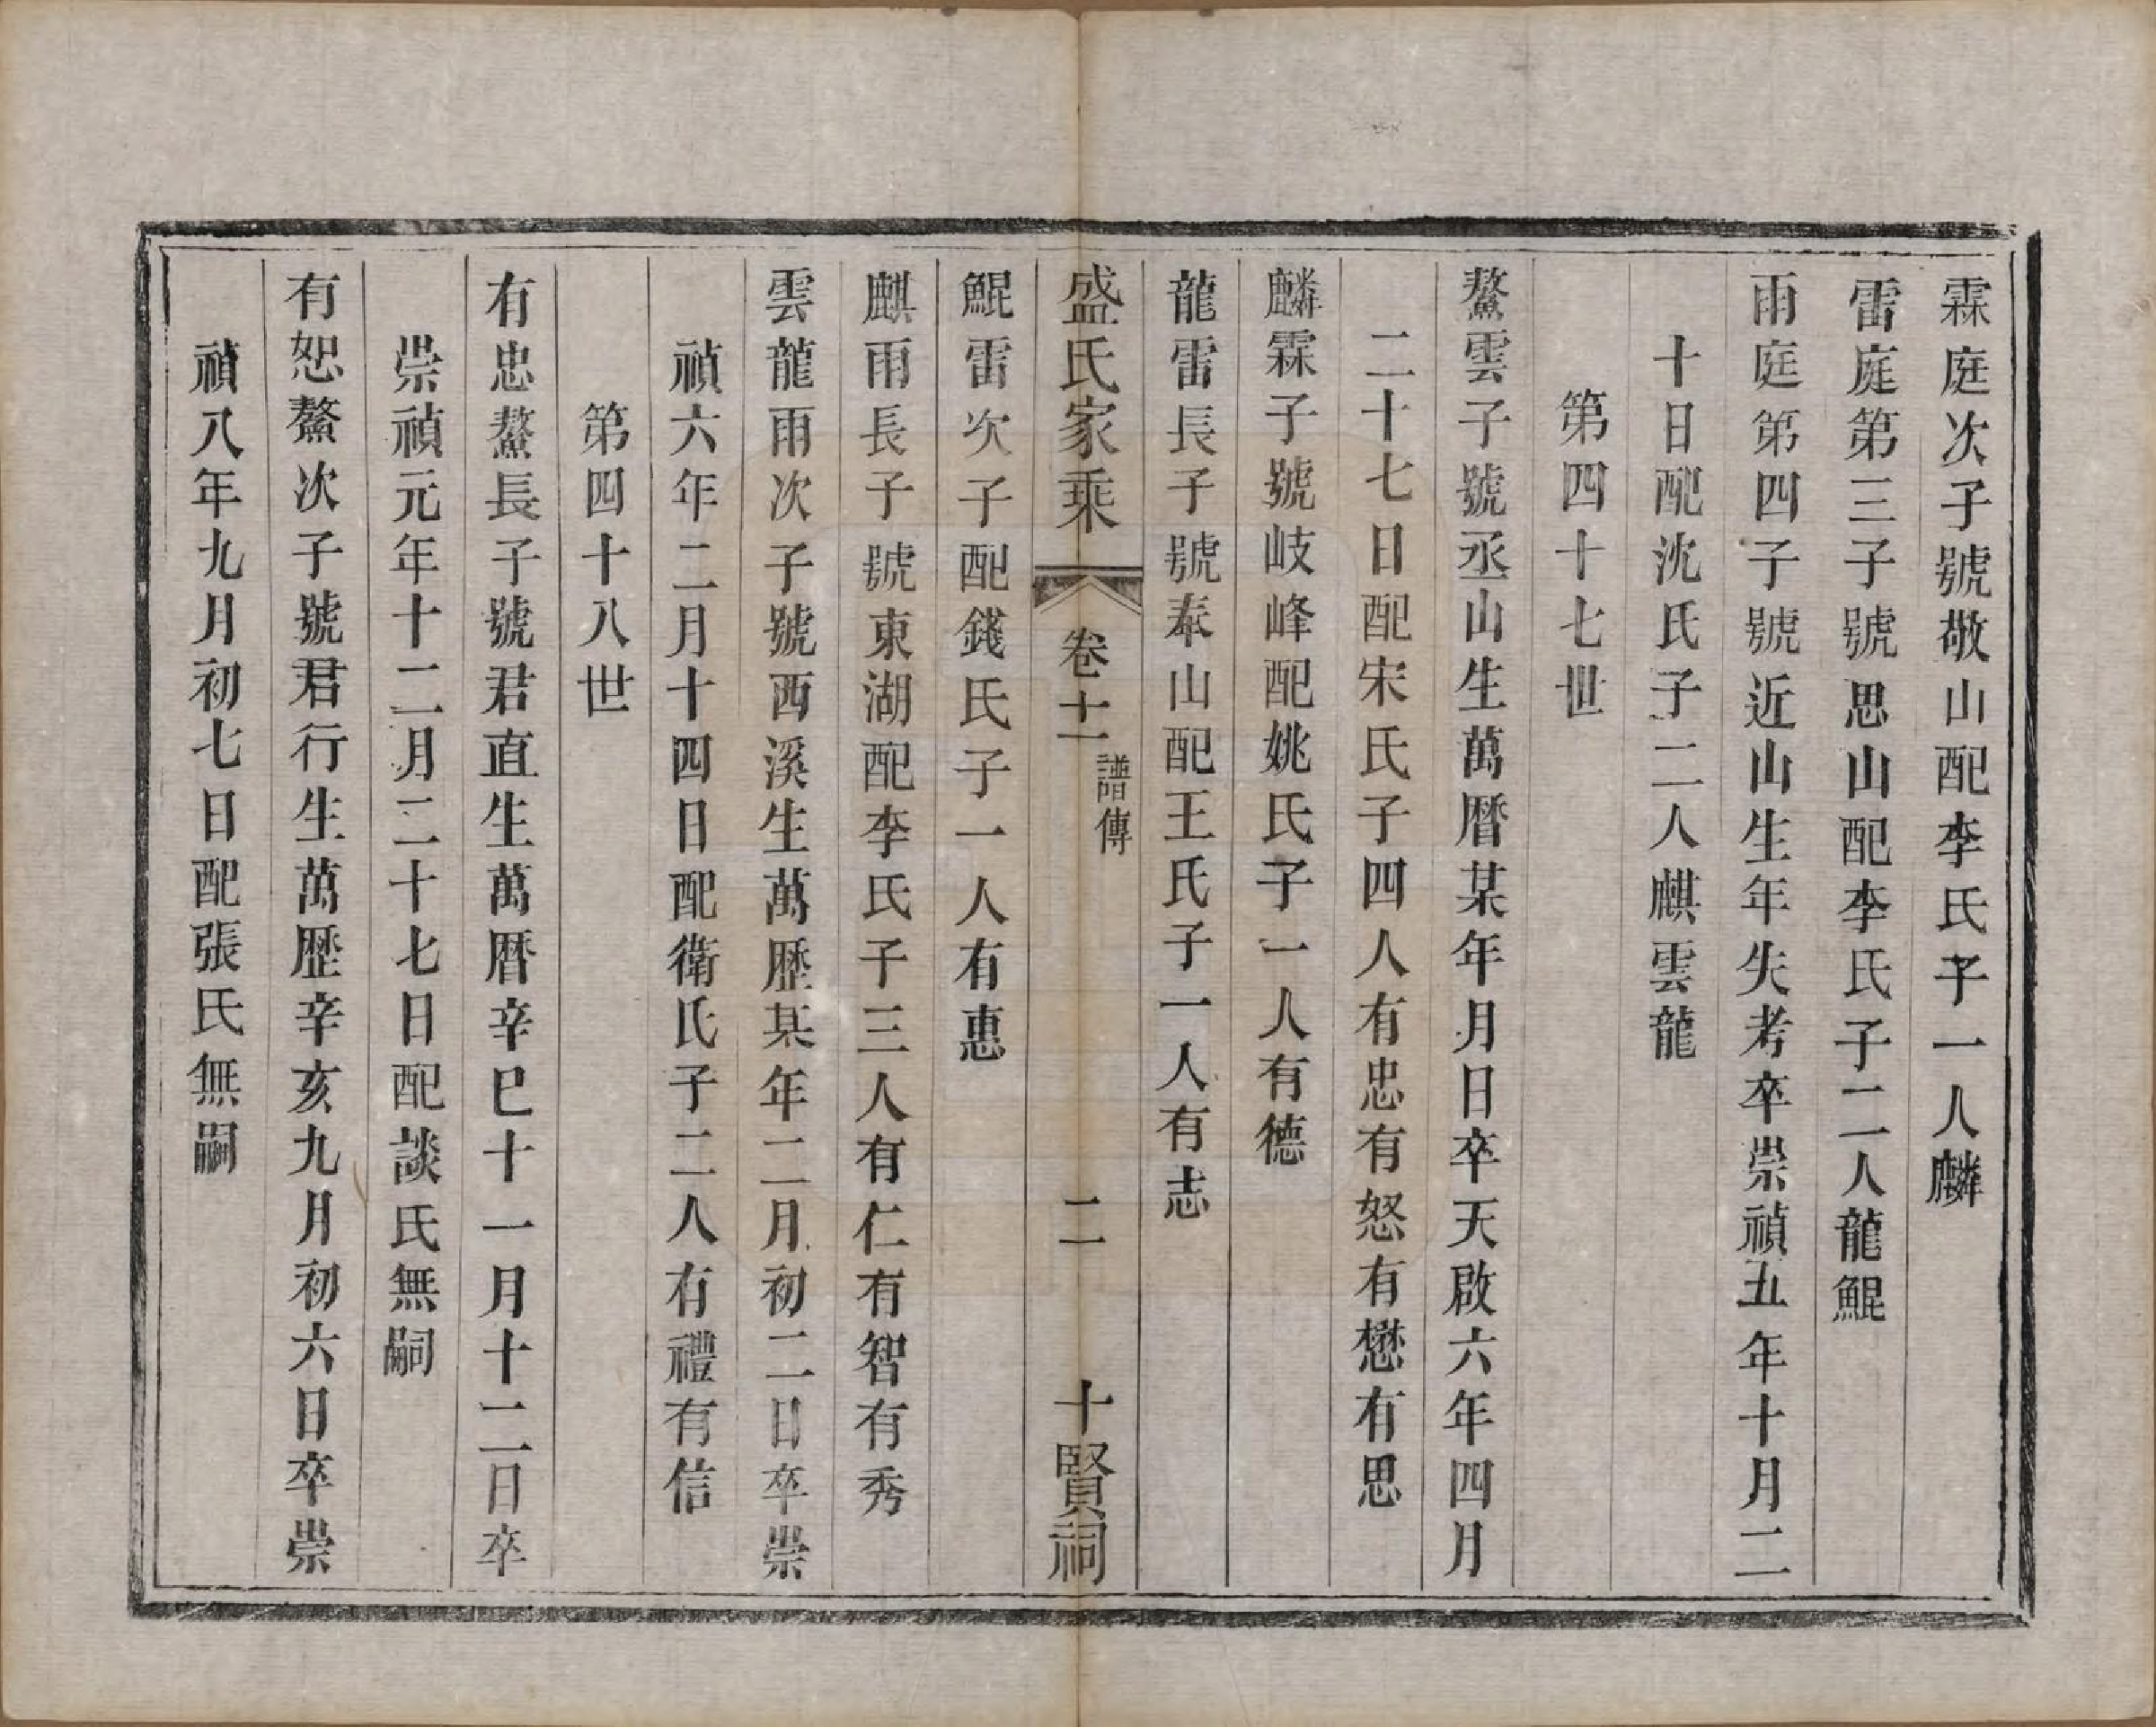 霖庭次子號敬山配李氏子一人麟
雷庭第三子號思山配李氏子二人龍鯤
雨庭第四子號近山生年失考卒崇禎五年十月二
十日配沈氏子二人麒雲龍
第四十七世
鰲雲子號丞山生萬曆某年月日卒天啟六年四月
二十七日配宋氏子四人有忠有怒有懋有思
麟霖子號岐峰配姚氏子一人有德
龍雷長子號奉山配王氏子一人有志
盛氏家乘 卷十一 譜傳 二 十賢祠
鯤雷次子配錢氏子一人有惠
麒雨長子號東湖配李氏子三人有仁有智有秀
雲龍雨次子號西溪生萬歷某年二月初二日卒崇
禎六年二月十四日配衛氏子二人有禮有信
第四十八世
有忠鰲長子號君直生萬曆辛巳十一月十二日卒
崇禎元年十二月二十七日配談氏無嗣
有恕鰲次子號君行生萬歷辛亥九月初六日卒崇
禎八年九月初七日配張氏無嗣